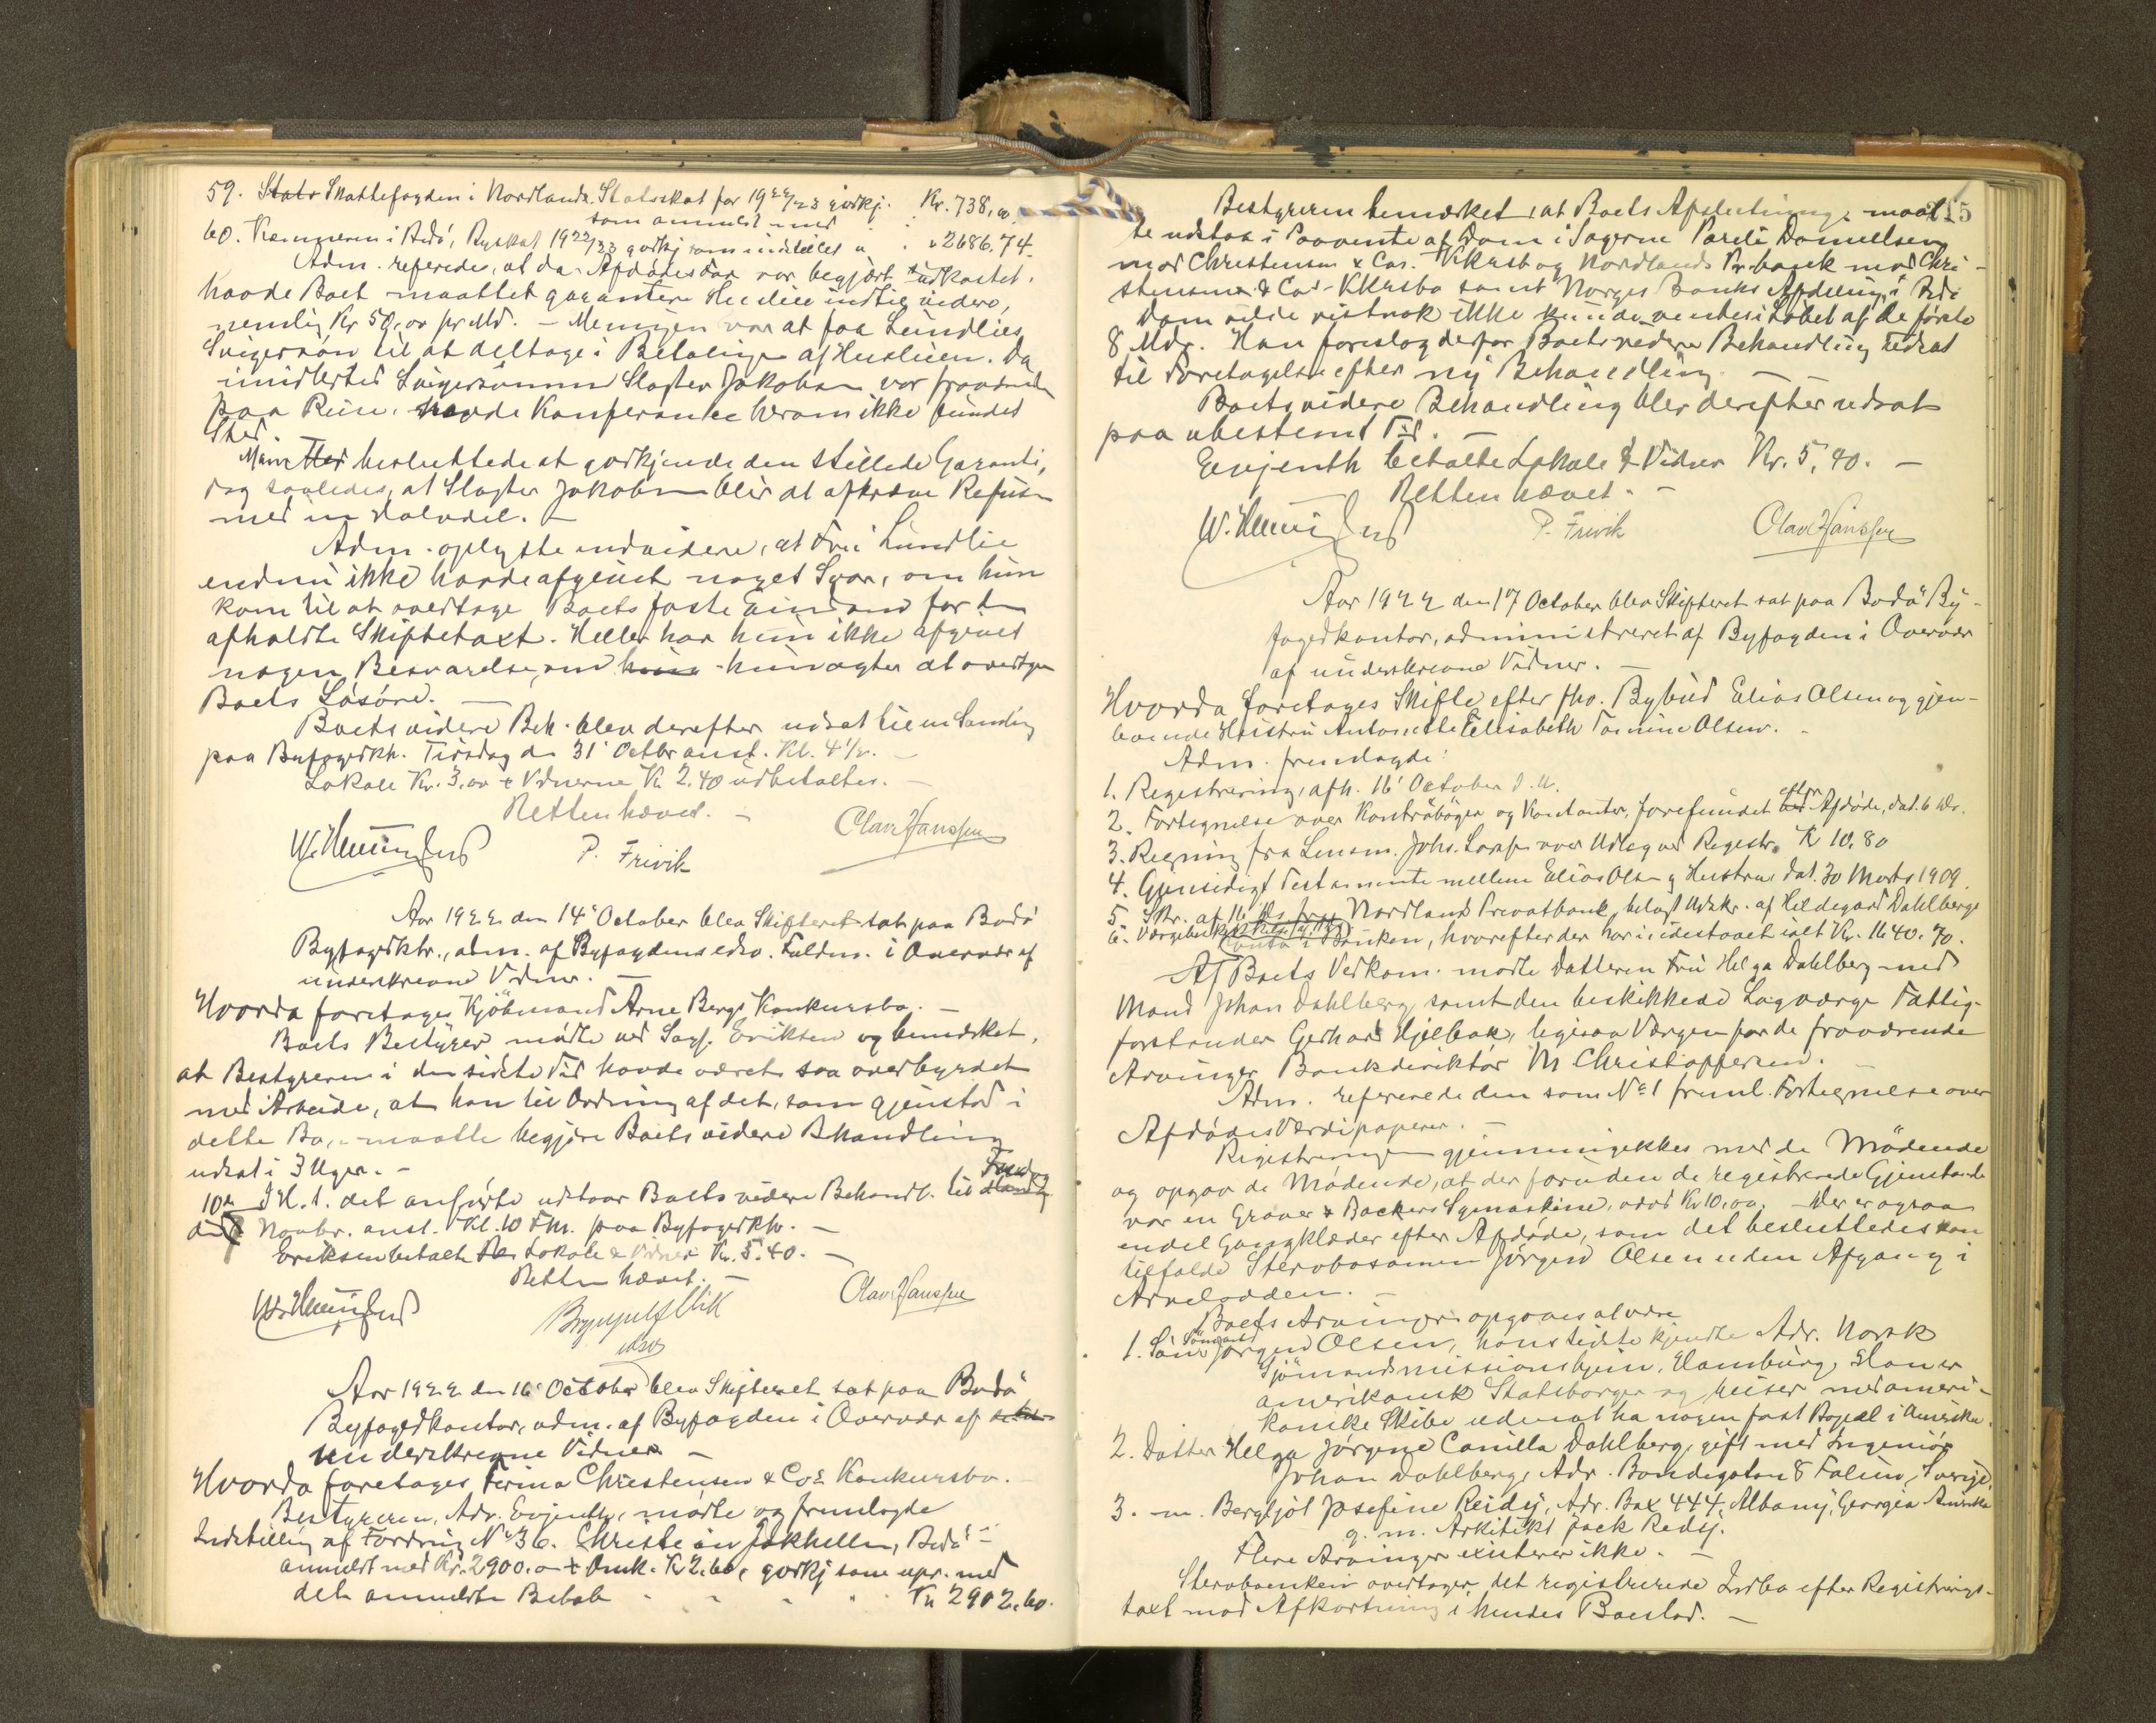 59. Stats Skattefogden i Nordland. Statsskat for 1922/23 godkj. Kr. 738,00
som anmeldt med
60. Kæmneren i Bodö, Byskat 1922/23 godkj som indstillet " 2686.74.
Adm. referede, at da Afdödes Far var begjært udkastet,
havde Boet maattet garantere Husleie indtil videre,
nemlig Kr 50,00 pr Md. – Meningen var at faa Lundlies
Svigersön til at deltage i Betalingen af Husleien. Da
imidlertid Svigersönnen Slagter Jakobsen var fraværende
paa Reise, havde Konferance herom ikke fundet
Sted.
Man besluttede at godkjende den stillede Garanti,
dog saaledes, at Slagter Jakobsen blir at afkræve Refusion
med en Halvdel. –
Adm. oplyste endvidere, at Fru Lundlie
endnu ikke havde afgivet noget Svar, om hun
kom til at overtage Boets faste Eiendom for den
afholdte Skiftetaxt. Heller har hun ikke afgivet
nogen Besvarelse, om hun agter at overtage
Boets Lösöre. –
Boets videre Beh. blev derefter udsat til en Samling
paa Byfogedkt. Tirsdag den 31' Octbr anst. Kl. 4 1/2. –
Lokale Kr. 3,00 & Vidnerne Kr 2.40 udbetaltes. –
Retten hævet. –
P. Frivik
Olav Hanssen
Aar 1922 den 14' October blev Skifteret sat paa Bodö
Byfogedktr., adm. af Byfogdens edsv. Fuldm. i Overvær af
underskrevne Vidner. –
Hvorda foretages Kjöbmand Arne Bergs Konkursbo. –
Boets Bestyrer mödte ved Sagf. Eriksen og bemærket,
at Bestyreren i den sidste Tid havde været saa overbyrdet
med Arbeide, at han til Ordning af det, som gjenstod i
dette Bo, maatte begjære Boets videre Behandling
udsat i 3 Uger. –
I H. t. det anförte udstaar Boets videre Behandl. til Fredag
den 10de Novbr. anst. Kl. 10 Fm. paa Byfogedktr. –
Eriksen betalte Lokale & Vidner Kr. 5.40. –
Retten hævet. –
Olav Hanssen
Aar 1922 den 16' October blev Skifteret sat paa Bodö
Byfogedkontor, adm. af Byfogden i Overvær af
underskrevne Vidner –
Hvorda foretages Firma Christensen & Co's Konkursbo. –
Bestyreren, Adv. Evjenth, mödte og fremlagde
Indstilling af Fordring No 36. Christensen Jakhelln, Bodö –
anmeldt med Kr. 2900.00 + Omk. Kr 2.60, godkj som upr. med
det anmeldte Belöb Kr 2902.60.
215
Bestyreren bemærket, at Boets Afslutning maat
te udstaa i Paavente af Dom i Sagerne Paréli Danielsen
mod Christensen & Cos. Kkursb og Nordlands Pr.bank mod Chri-
stensen & Cos – Kkursbo samt Norges Banks Afdeling i Bodö
Dom vilde vistnok ikke kunde ventes i Löbet af de förste
8 Mdr. Han foreslog derfor Boets videre Behandling udsat
til Foretagelse efter ny Behandling –
Boets videre Behandling blev derefter udsat
paa ubestemt Tid. –
Evjenth betalte Lokale & Vidner Kr. 5,40. –
Retten hævet. –
P. Frivik
Olav Hanssen
Aar 1922 den 17 October blev Skifteret sat paa Bodö By-
fogedkontor, administreret af Byfogden i Overvær
af underskrevne Vidner. –
Hvorda foretages Skifte efter fhv. Bybud Elias Olsen og gjen-
levende Hustru Antonette Elisabeth Tomine Olsen. –
Adm. fremlagde:
1. Registrering, afh. 16' October d. A.
2. Fortegnelse over Kontrabøger og Kontanter, forefundet efter Afdöde, dat. 6 ds.
3. Regning fra Lensm. Johs. Larsen over Udlæg ved Registr. Kr 10.80
4. Gjensidigt Testamente mellem Elias Olsen og Hustru dat. 30 Marts 1909.
5. Skr. af 16 ds. fra Nordlands Privatbank, belagt Udskr. af Hildegard Dahlbergs
Conto i Banken, hvorefter der har indestaaet ialt Kr. 1640.70.
Af Boets Vedkom. mødte Datteren Fru Helga Dahlberg med
Mand Johan Dahlberg, samt den beskikkede Lagværge Fattig-
forstander Gerhard Hjelbak, ligesaa Værgen for de fraværende
Arvinger Bankdirektör M Christoffersen.
Adm. refererede den som No 1 freml. Fortegnelse over
Afdödes Værdipapirer. –
Registreringen gjennemgikkes med de Mödende
og opgav de Mödende, at der foruden de registrerede Gjenstande
var en Grover & Backers Symaskine, værd Kr 10,00. Der er ogsaa
endel Gangklæder efter Afdöde, som det besluttedes kan
tilfalde Stervbosönnen Jörgen Olsen uden Afgang i
Arvelodden. –
Boets Arvinger opgaves at være
1. Sön Sömand Jörgen Olsen, hans sidste kjendte Adr. Norsk
Sjömandsmissionshjem, Hamburg, Han er
amerikansk Statsborger og reiser med ameri-
kanske Skibe uden at ha nogen fast Bopæl i Amerika.
2. Datter Helga Jörgine Camilla Dahlberg, gift med Ingeniör
Johan Dahlberg, Adr. Bondegatan 8 Falun, Sverige.
3. –"– Bergljot Josefine Reidy, Adr. Box 444, Albany, Georgia Amerika
g. m. Arkitekt Jack Reidy.
Flere Arvinger existerer ikke. –
Stervboenken overtager det registrerede Indbo efter Registrerings-
taxt mod Afkortning i hendes Boeslod. –